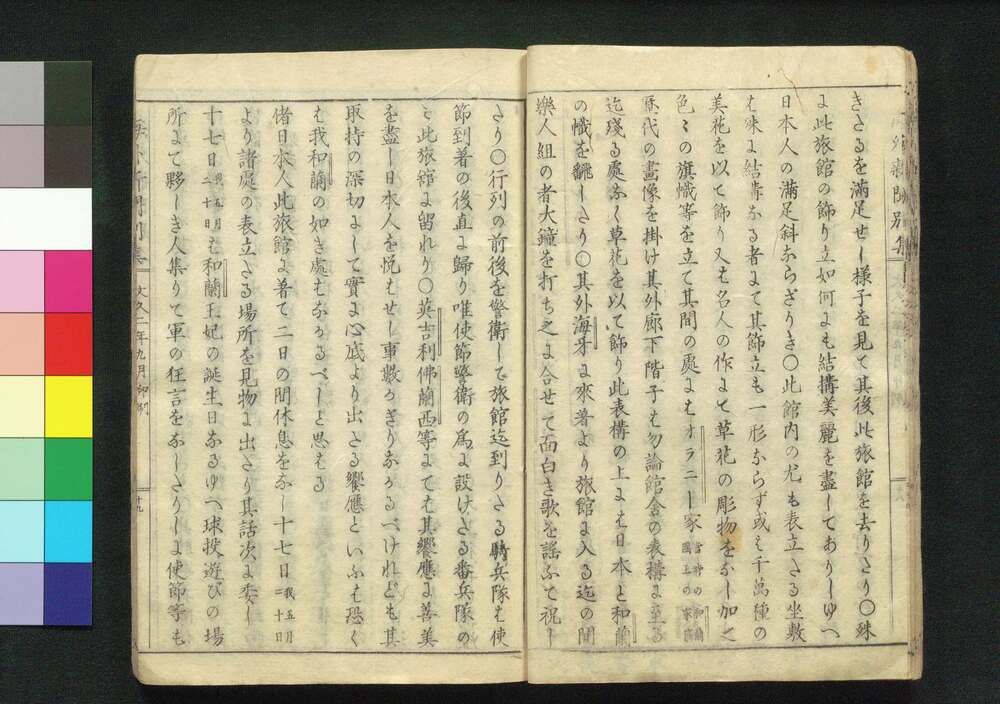 きたるを滿足せし様子を見て其後此旅館を去りたり〇殊
に此旅館の飾り立如何にも結搆美麗を盡してありしゆへ
日本人の滿足斜ならざりき〇此館内の尤も表立たる坐敷
は殊に結搆なる者にて其飾立も一形ならず或は千萬種の
美花を以て飾り又は名人の作にて草花の彫物をなし加之
色々の旗幟等を立て其間の處にはオラニー家當時の和蘭國王の家
歷代の畫像を掛け其外廊下階子は勿論館舍の表構に至る
迄殘る處なく草花を以て飾り此表構の上には日本と和蘭
の幟を飜したり〇其外海牙に來着より旅館に入る迄の間
樂人組の者大鐘を打ち之に合せて面白き歌を謡ふて祝し
たり〇行列の前後を警衛して旅館迄到りたる騎兵隊は使
節到着の後直に歸り唯使節警衛の爲に設けたる番兵隊の
み此旅館に留れり〇英吉利佛蘭西等にても其饗應に善美
を盡し日本人を悦はせし事數かぎりなかるべけれども其
取持の深切にして實に心底より出たる饗應といふは恐く
は我和蘭の如き處はなかるべしと思はる
偖日本人此旅館に着て二日の間休息をなし十七日我五月二十日
より諸處の表立たる場所を見物に出たり其話次に委し
十七日我五月二十日は和蘭王妃の誕生日なるゆへ球投遊びの場
所にて夥しき人集りて軍の狂言をなしたりしに使節等も
文久二年九月
十九